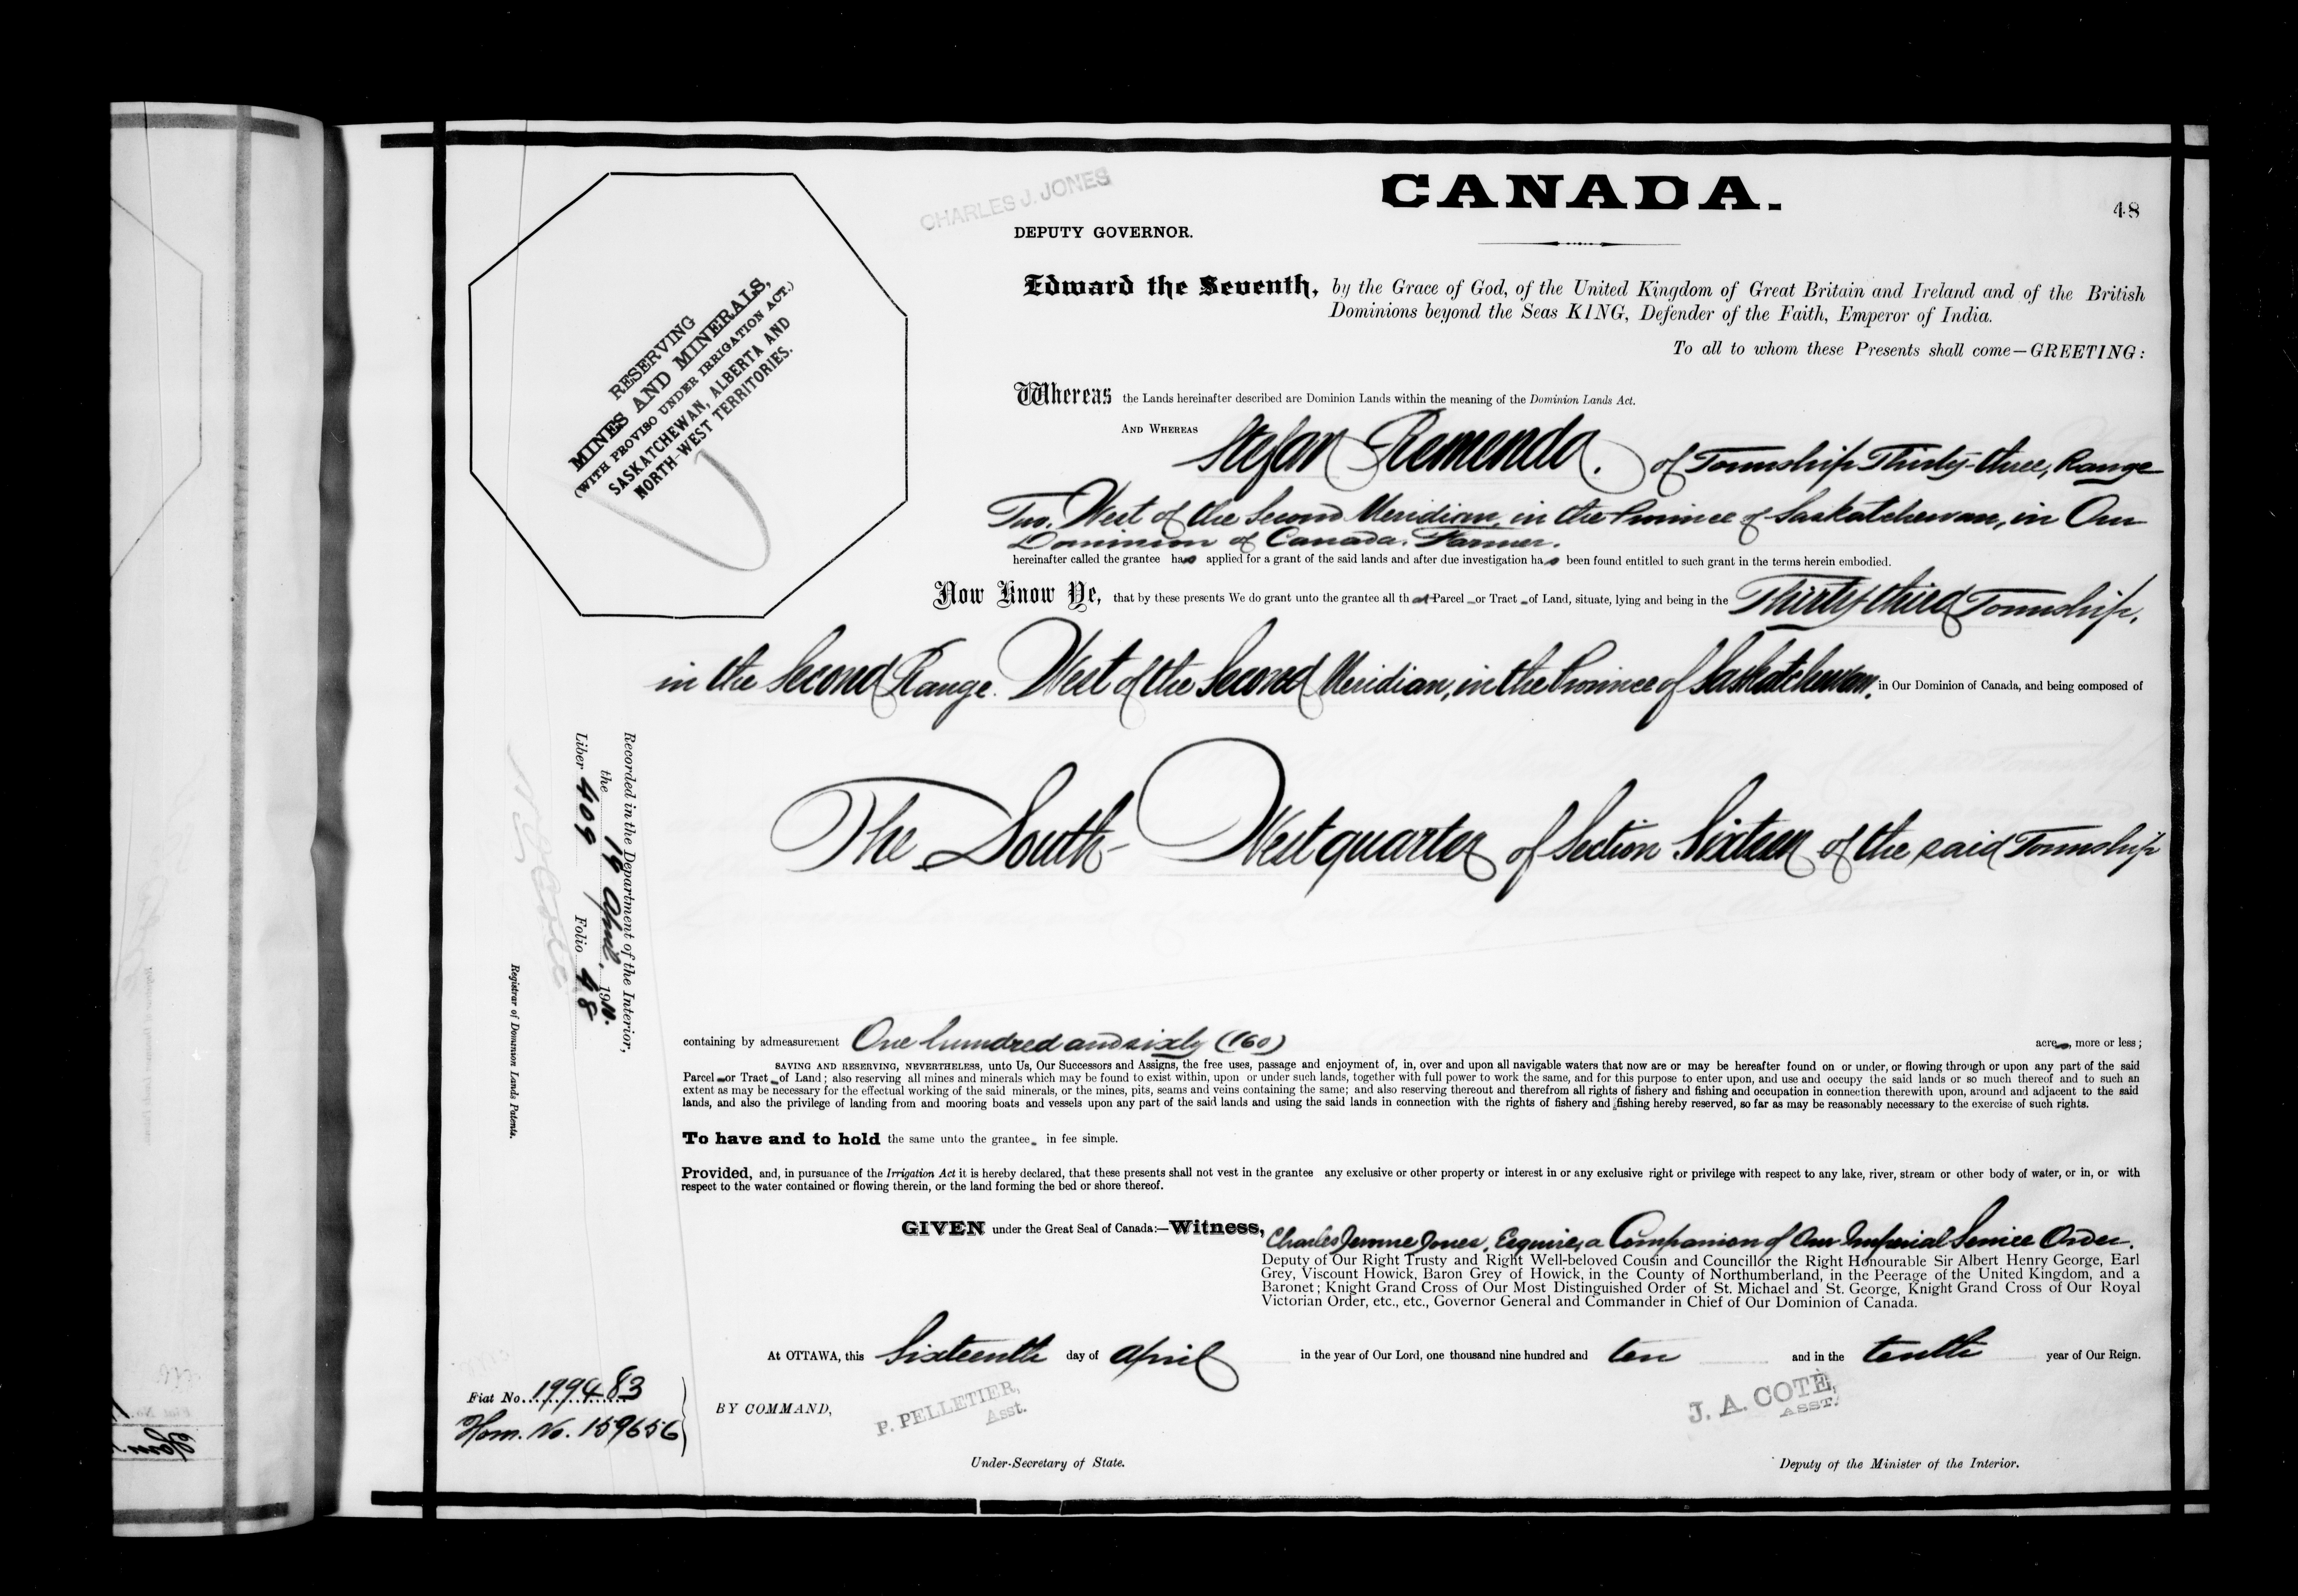 CHARLES J. JONES
CANADA.
48
DEPUTY GOVERNOR.
Edward the Seventh, by the Grace of God, of the United Kingdom of Great Britain and Ireland and of the British
Dominions beyond the Seas KING, Defender of the Faith, Emperor of India.
To all to whom these Presents shall come—GREETING:
RESERVING
MINES AND MINERALS,
(WITH PROVISO UNDER IRRIGATION ACT.)
SASKATCHEWAN, ALBERTA AND
NORTH-WEST TERRITORIES.
Whereas the Lands hereinafter described are Dominion Lands within the meaning of the Dominion Lands Act.
AND WHEREAS Stefan Remenda. of Township Thirty-three, Range
Two, West of the Second Meridian, in the Province of Saskatchewan, in Our
Dominion of Canada, Farmer.
hereinafter called the grantee has applied for a grant of the said lands and after due investigation has been found entitled to such grant in the terms herein embodied.
Now Know Ye, that by these presents We do grant unto the grantee all that Parcel or Tract of Land, situate, lying and being in the Thirty-third Township,
in the Second Range. West of the Second Meridian, in the Province of Saskatchewan, in Our Dominion of Canada, and being composed of
The South-West quarter of Section Sixteen of the said Township
Recorded in the Department of the Interior,
the 19 April, 1910.
Liber 409 Folio 48
Registrar of Dominion Lands Patents.
containing by admeasurement One hundred and sixty (160) acres, more or less;
SAVING AND RESERVING, NEVERTHELESS, unto Us, Our Successors and Assigns, the free uses, passage and enjoyment of, in, over and upon all navigable waters that now are or may be hereafter found on or under, or flowing through or upon any part of the said
Parcel or Tract of Land; also reserving all mines and minerals which may be found to exist within, upon or under such lands, together with full power to work the same, and for this purpose to enter upon, and use and occupy the said lands or so much thereof and to such an
extent as may be necessary for the effectual working of the said minerals, or the mines, pits, seams and veins containing the same; and also reserving thereout and therefrom all rights of fishery and fishing and occupation in connection therewith upon, around and adjacent to the said
lands, and also the privilege of landing from and mooring boats and vessels upon any part of the said lands and using the said lands in connection with the rights of fishery and fishing hereby reserved, so far as may be reasonably necessary to the exercise of such rights.
To have and to hold the same unto the grantee in fee simple.
Provided, and, in pursuance of the Irrigation Act it is hereby declared, that these presents shall not vest in the grantee any exclusive or other property or interest in or any exclusive right or privilege with respect to any lake, river, stream or other body of water, or in, or with
respect to the water contained or flowing therein, or the land forming the bed or shore thereof.
GIVEN under the Great Seal of Canada:—Witness, Charles Jones, Esquire, a Companion of Our Imperial Service Order.
Deputy of Our Right Trusty and Right Well-beloved Cousin and Councillor the Right Honourable Sir Albert Henry George, Earl
Grey, Viscount Howick, Baron Grey of Howick, in the County of Northumberland, in the Peerage of the United Kingdom, and a
Baronet; Knight Grand Cross of Our Most Distinguished Order of St. Michael and St. George, Knight Grand Cross of Our Royal
Victorian Order, etc., etc., Governor General and Commander in Chief of Our Dominion of Canada.
At OTTAWA, this Sixteenth day of April in the year of Our Lord, one thousand nine hundred and ten and in the tenth year of Our Reign.
Fiat No. 199483
Hom. No. 159656
BY COMMAND,
P. PELLETIER,
Asst.
J. A. COTÉ,
ASST.
Under-Secretary of State.
Deputy of the Minister of the Interior.